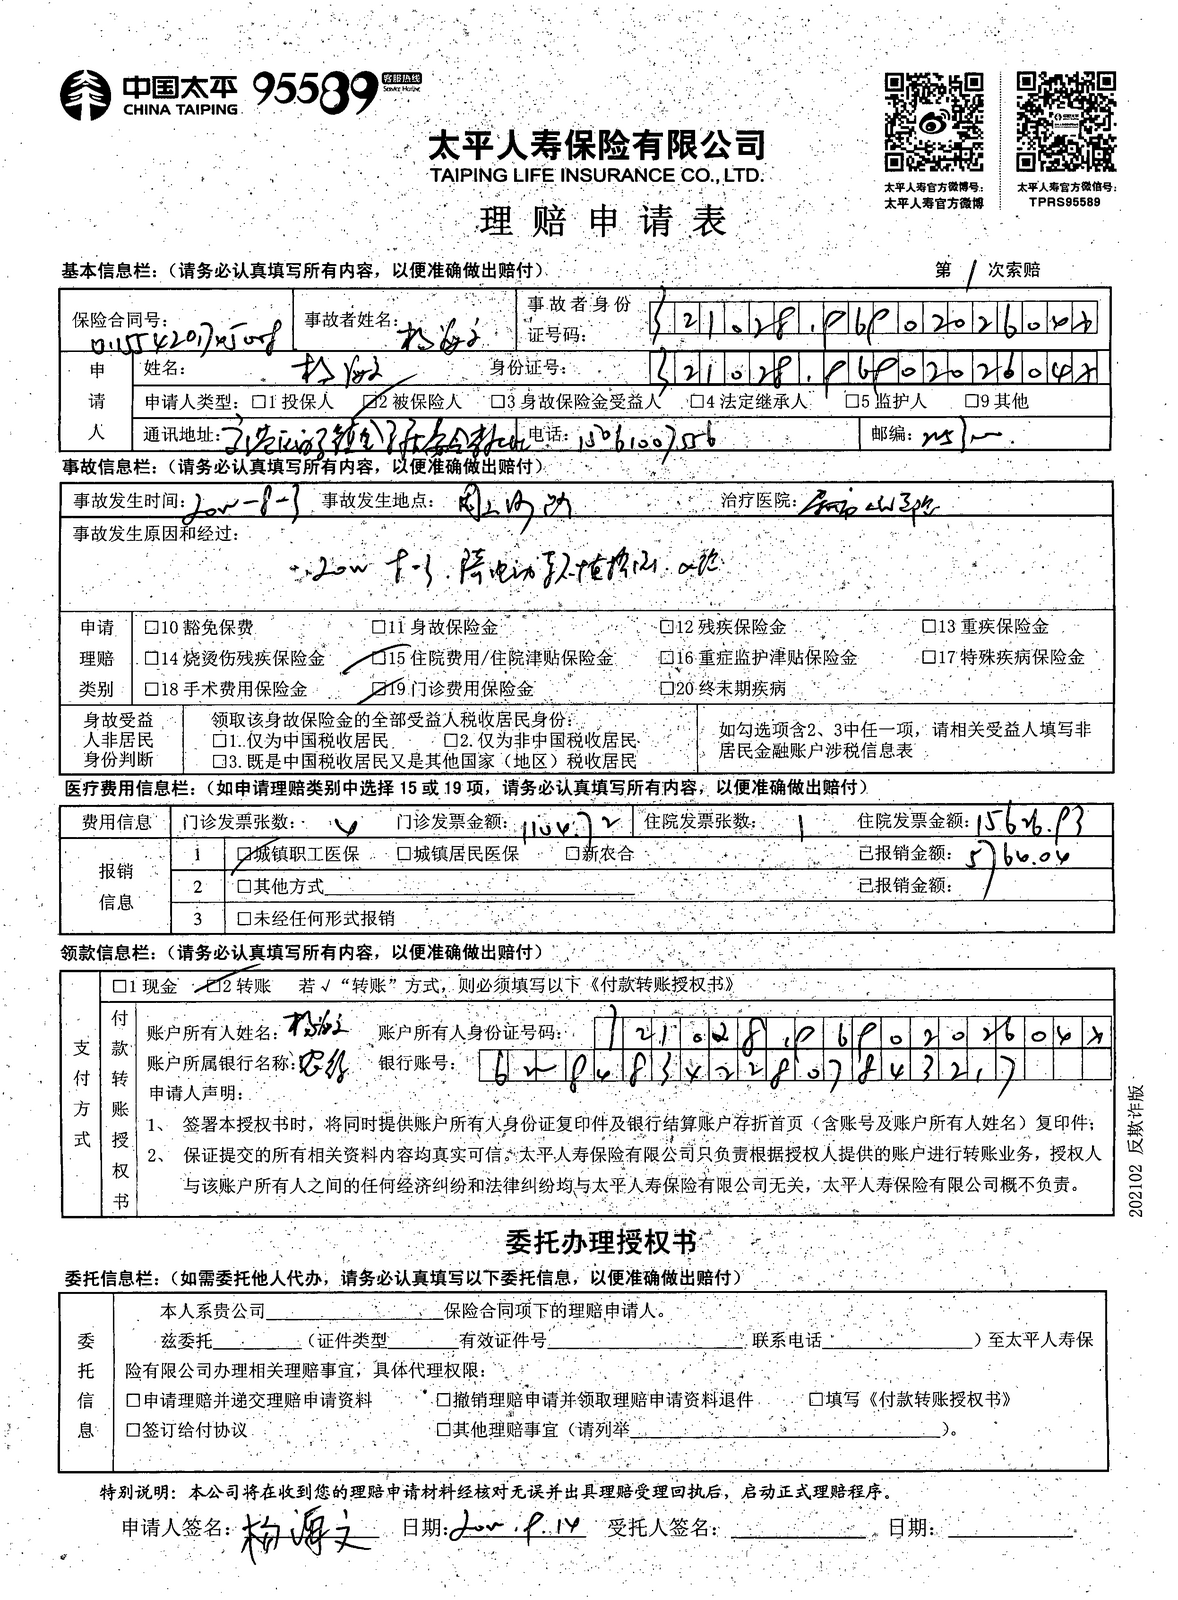 中国太平 95589 客服热线
CHINA TAIPING Service Hotline
太平人寿保险有限公司
TAIPING LIFE INSURANCE CO.,LTD.
理赔申请表
太平人寿官方微博号:
太平人寿官方微博
太平人寿官方微信号:
TPRS95589
基本信息栏:(请务必认真填写所有内容,以便准确做出赔付) 第1次索赔
保险合同号: 事故者姓名: 事故者身份
证号码:
申请人
姓名: 身份证号:
申请人类型: □1投保人 □2被保险人 □3身故保险金受益人 □4法定继承人 □5监护人 □9其他
通讯地址: 电话:15061007556 邮编:
事故信息栏:(请务必认真填写所有内容,以便准确做出赔付)
事故发生时间: 事故发生地点: 治疗医院:
事故发生原因和经过:
申请理赔类别
□10豁免保费 □11身故保险金 □12残疾保险金 □13重疾保险金
□14烧烫伤残疾保险金 □15住院费用/住院津贴保险金 □16重症监护津贴保险金 □17特殊疾病保险金
□18手术费用保险金 □19门诊费用保险金 □20终末期疾病
身故受益人非居民身份判断
领取该身故保险金的全部受益人税收居民身份:
□1.仅为中国税收居民 □2.仅为非中国税收居民
□3.既是中国税收居民又是其他国家(地区)税收居民
如勾选项含2、3中任一项,请相关受益人填写非
居民金融账户涉税信息表
医疗费用信息栏:(如申请理赔类别中选择15或19项,请务必认真填写所有内容,以便准确做出赔付)
费用信息 门诊发票张数:4 门诊发票金额:1104.72 住院发票张数:1 住院发票金额:15626.93
报销信息
1 □城镇职工医保 □城镇居民医保 □新农合 已报销金额:5764.04
2 □其他方式 已报销金额:
3 □未经任何形式报销
领款信息栏:(请务必认真填写所有内容,以便准确做出赔付)
支付方式
□1现金 □2转账 若√“转账”方式,则必须填写以下《付款转账授权书》
付款转账授权书
账户所有人姓名: 账户所有人身份证号码:
账户所属银行名称:农行 银行账号:
申请人声明:
1、签署本授权书时,将同时提供账户所有人身份证复印件及银行结算账户存折首页(含账号及账户所有人姓名)复印件;
2、保证提交的所有相关资料内容均真实可信。太平人寿保险有限公司只负责根据授权人提供的账户进行转账业务,授权人
与该账户所有人之间的任何经济纠纷和法律纠纷均与太平人寿保险有限公司无关,太平人寿保险有限公司概不负责。
202102 反欺诈版
委托办理授权书
委托信息栏:(如需委托他人代办,请务必认真填写以下委托信息,以便准确做出赔付)
委托信息
本人系贵公司 保险合同项下的理赔申请人。
兹委托 (证件类型 有效证件号 联系电话 )至太平人寿保
险有限公司办理相关理赔事宜,具体代理权限:
□申请理赔并递交理赔申请资料 □撤销理赔申请并领取理赔申请资料退件 □填写《付款转账授权书》
□签订给付协议 □其他理赔事宜(请列举 )。
特别说明:本公司将在收到您的理赔申请材料经核对无误并出具理赔受理回执后,启动正式理赔程序。
申请人签名: 日期: 受托人签名: 日期: